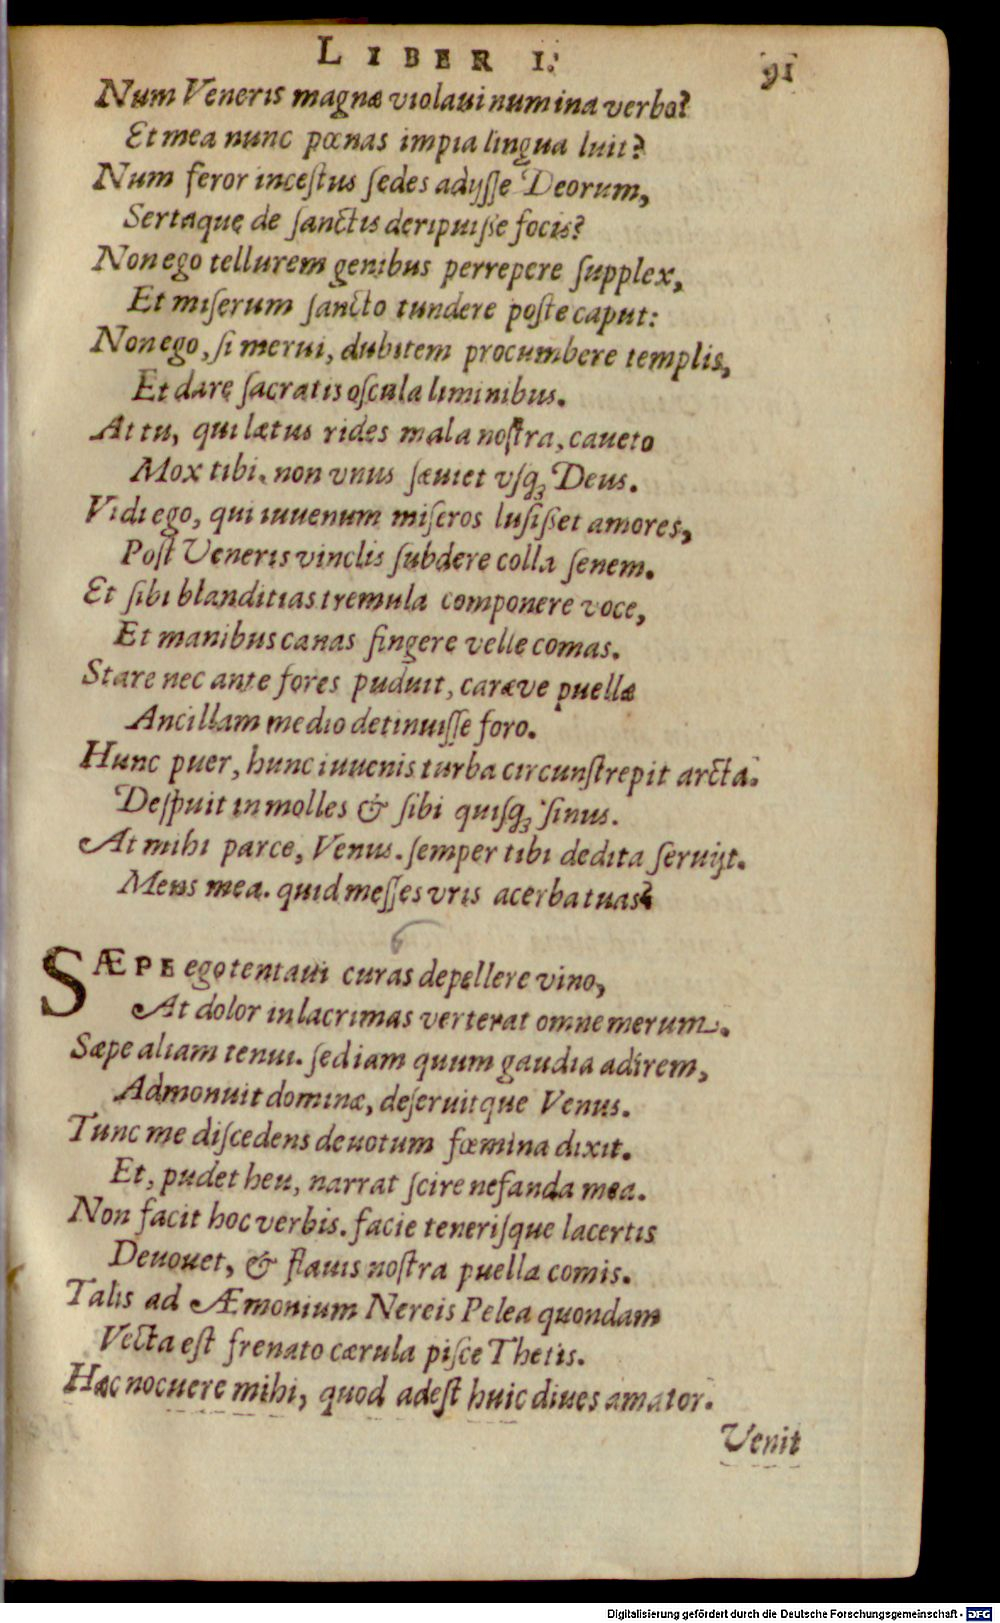 LIBER I.
91
Num Veneris magnæ violaui numina verbo?
Et mea nunc pœnas impia lingua luit?
Num feror incestus sedes adijsse Deorum,
Sertaque de sanctis deripuisse focis?
Non ego tellurem genibus perrepere supplex,
Et miserum sancto tundere poste caput:
Non ego, si merui, dubitem procumbere templis,
Et dare sacratis oscula liminibus.
At tu, qui lætus rides mala nostra, caueto
Mox tibi. non vnus sæuiet vsq; Deus.
Vidi ego, qui iuuenum miseros lusisset amores,
Post Veneris vinclis subdere colla senem.
Et sibi blanditias tremula componere voce,
Et manibus canas fingere velle comas.
Stare nec ante fores puduit, caræve puellæ
Ancillam medio detinuisse foro.
Hunc puer, hunc iuuenis turba circunstrepit arcta.
Despuit in molles & sibi quisq; sinus.
At mihi parce, Venus. semper tibi dedita seruijt.
Mens mea. quid messes vris acerba tuas?
SÆPE ego tentaui curas depellere vino,
At dolor in lacrimas verterat omne merum.
Sæpe aliam tenui. sed iam quum gaudia adirem,
Admonuit dominæ, deseruitque Venus.
Tunc me discedens deuotum fœmina dixit.
Et, pudet heu, narrat scire nefanda mea.
Non facit hoc verbis. facie tenerisque lacertis
Deuouet, & flauis nostra puella comis.
Talis ad Æmonium Nereis Pelea quondam
Vecta est frenato cærula pisce Thetis.
Hæc nocuere mihi, quod adest huic diues amator.
Venit
Digitalisierung gefördert durch die Deutsche Forschungsgemeinschaft - DFG